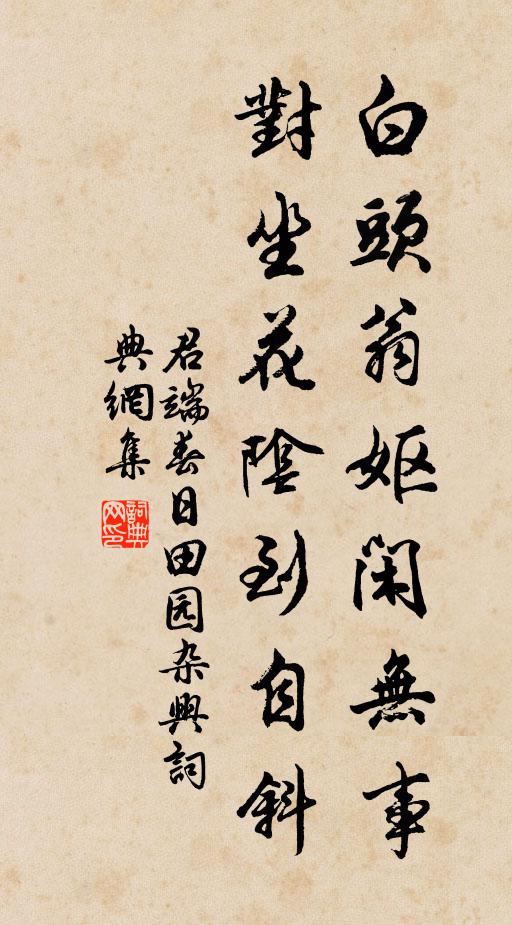 白頭翁妪閑無事
對坐花陰到自斜
君端春日田园杂興詞
典網集
詞典网印